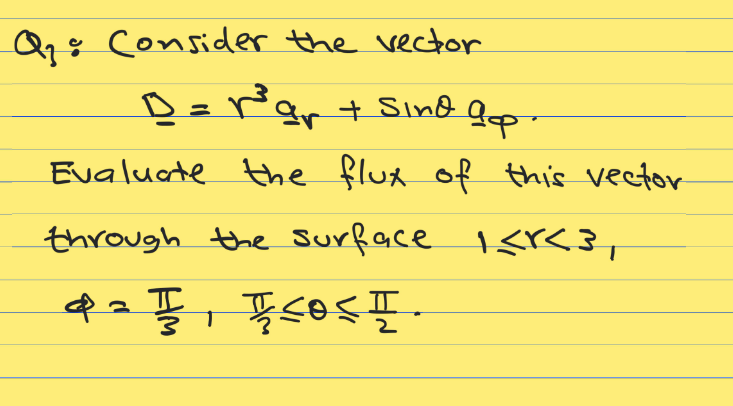 Q1: Consider the vector
D = r³ a_r + Sinθ a_φ.
Evaluate the flux of this vector
through the surface 1≤r<3,
φ = π/3, π/3≤θ≤π/2.